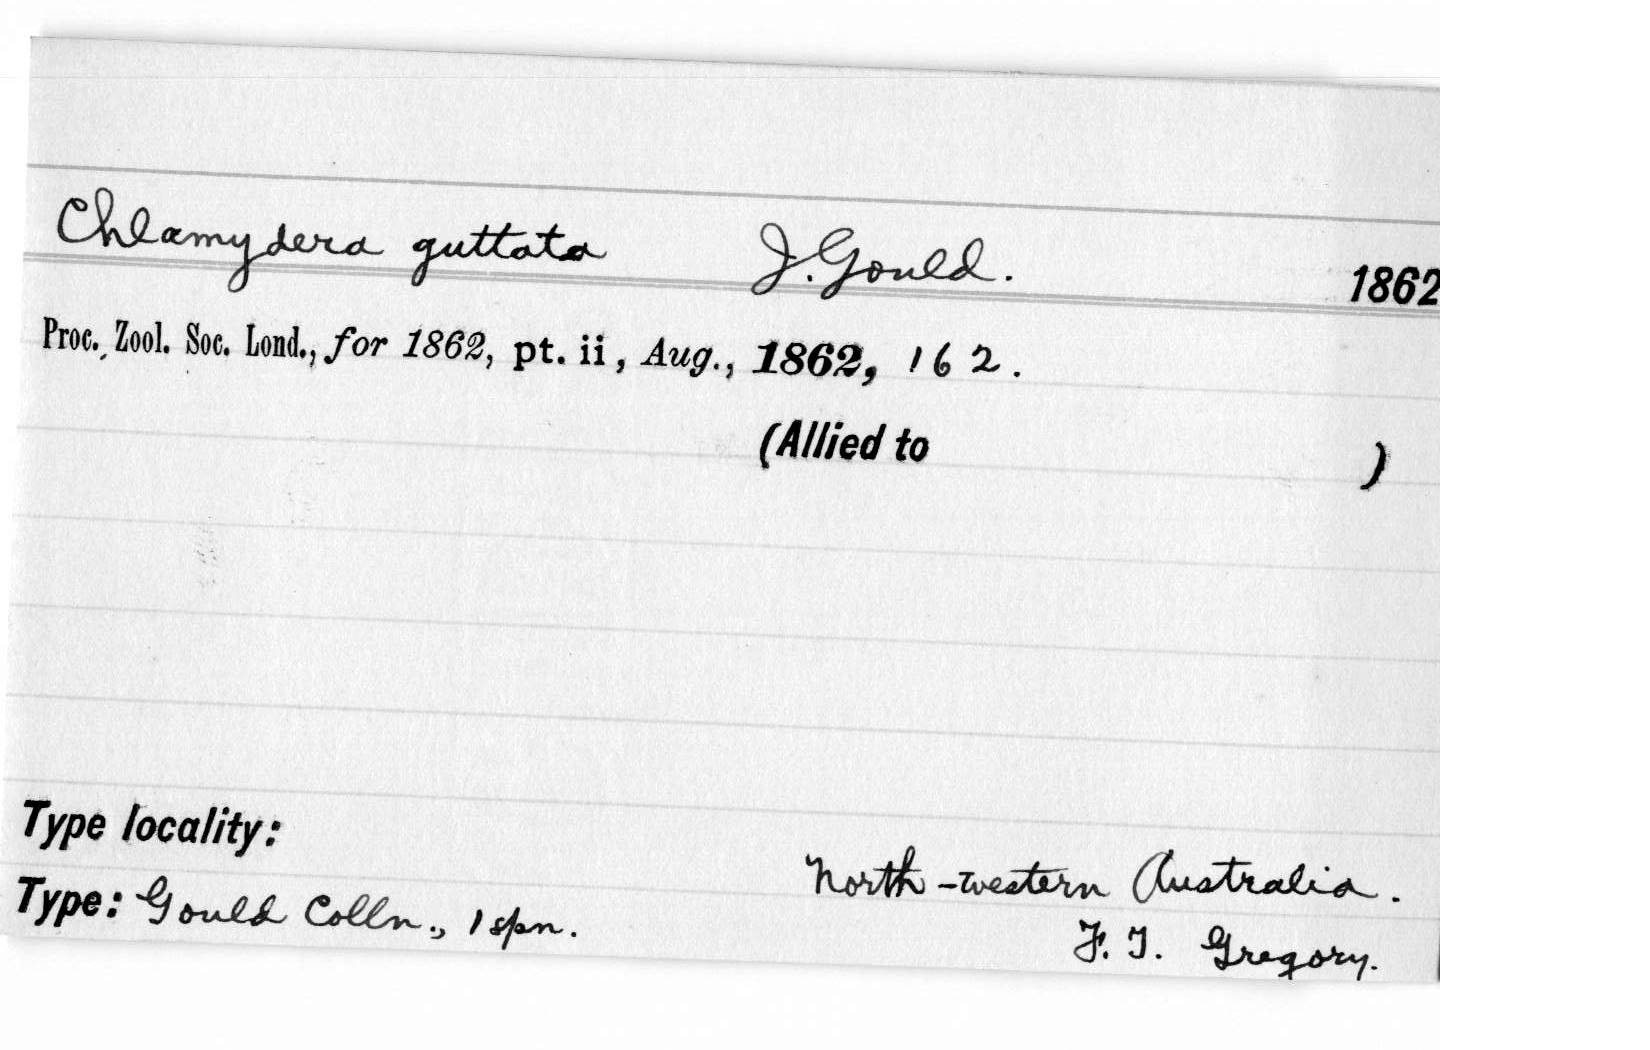 Chlamydera guttata J. Gould. 1862
Proc. Zool. Soc. Lond., for 1862, pt. ii, Aug., 1862, 162.
(Allied to )
Type locality:
North-western Australia.
Type: Gould Colln., 1 spn.
F. T. Gregory.